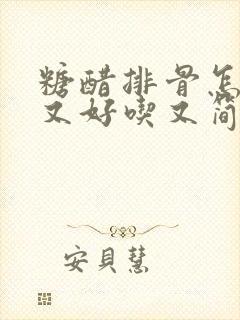 糖醋排骨怎
又好喫又简
安貝慧